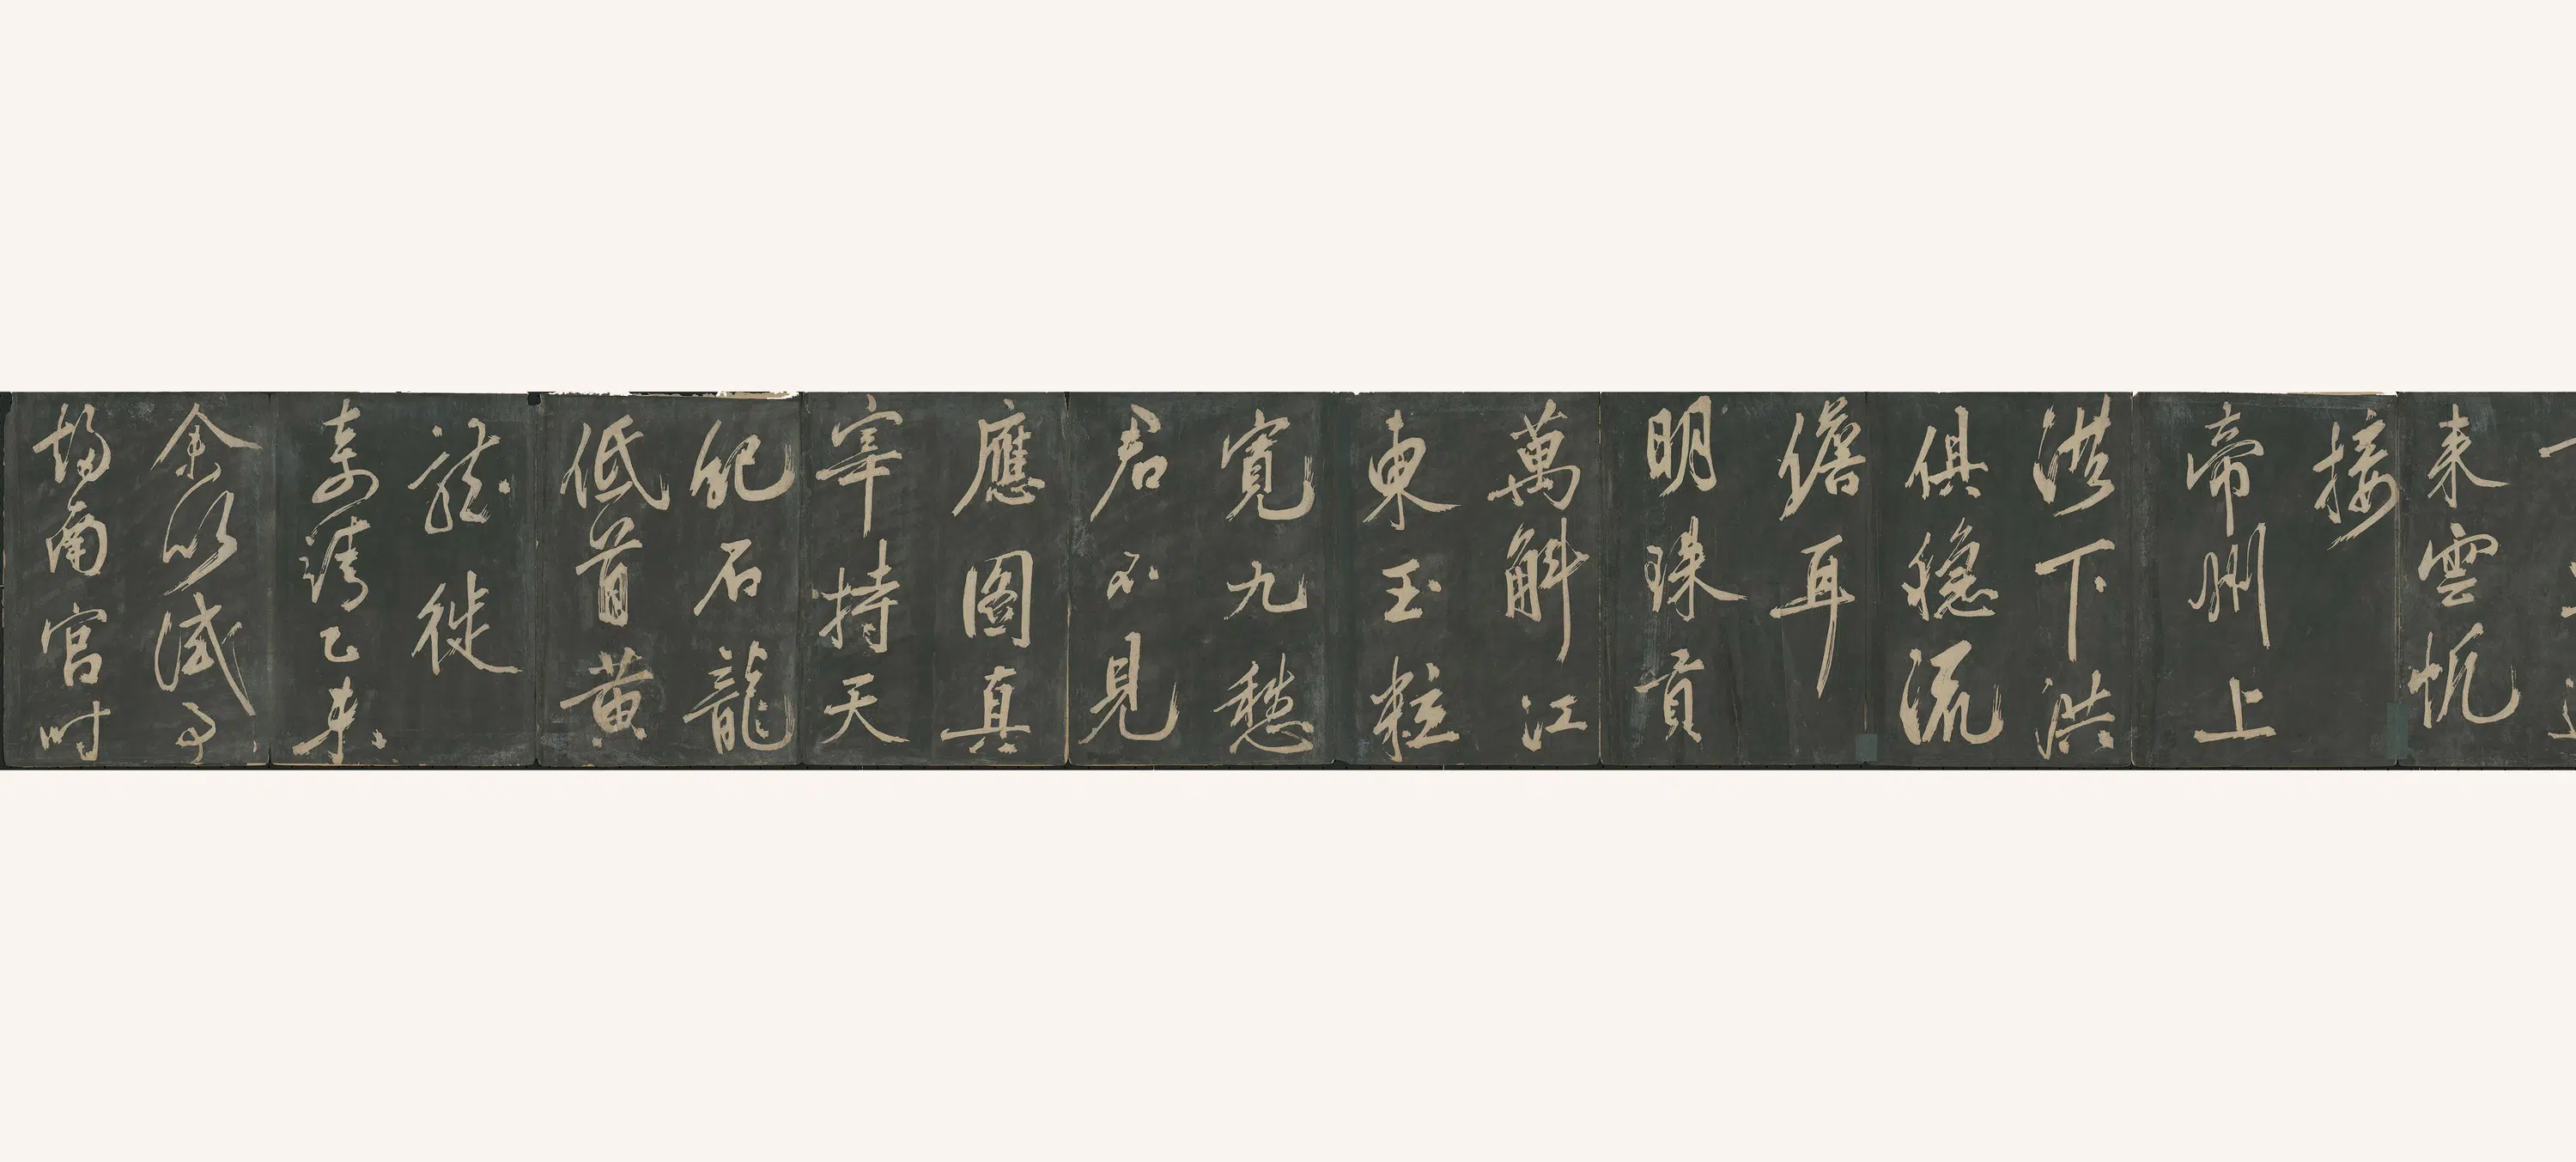 來雲帆
接
帝州上
下洪
俱穩流
儋耳
明珠貢
萬斛江
東玉粒
寬九愁
君不見
應圖真
宰持天
石龍
低首黃
徙
嘉靖乙未
余以試事
南宮時